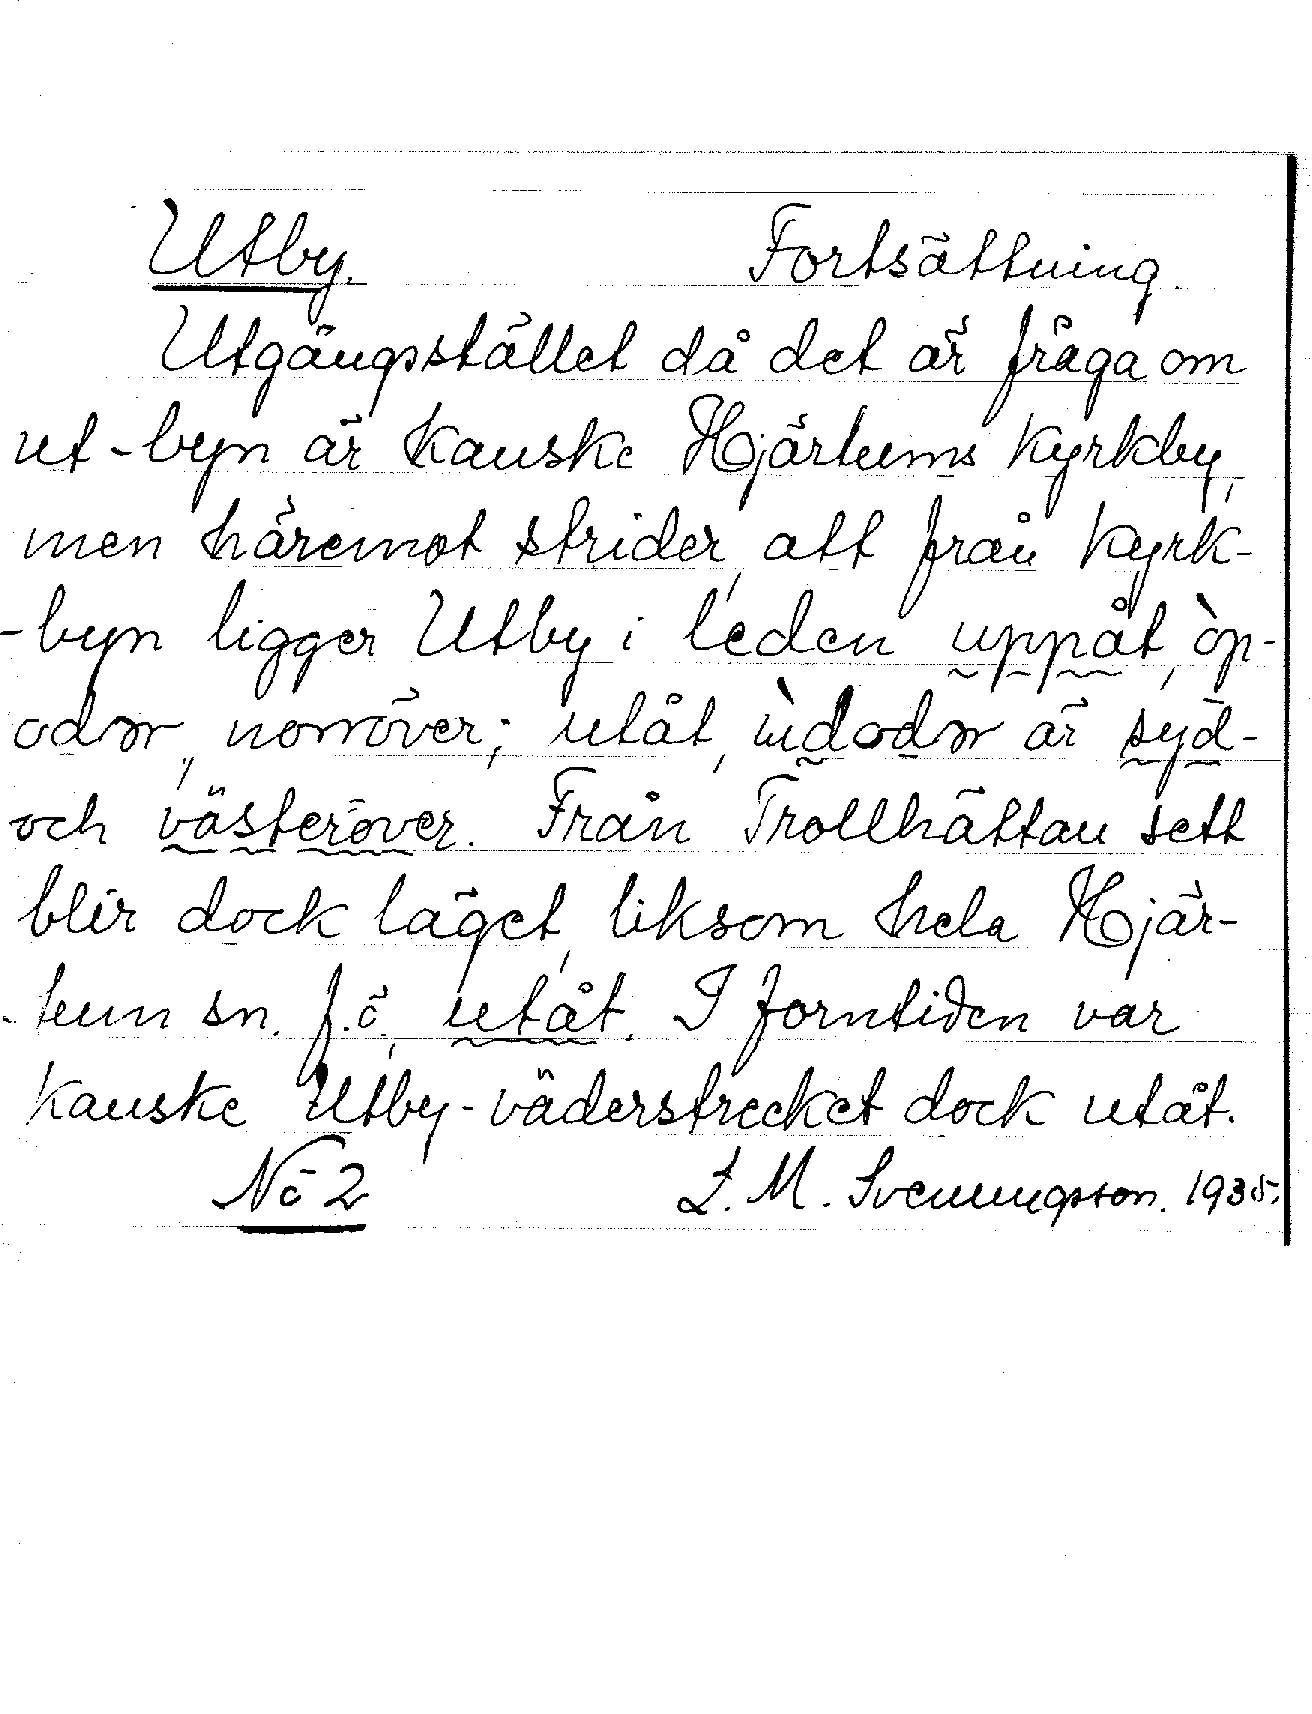 Utby. Fortsättning.
Utgångsstället då det är fråga om
ut-byn är kanske Hjärtums kyrkby,
men häremot strider, att från kyrk-
-byn ligger Utby i leden uppåt, òp-
odər, norröver; utåt, ùdodər är syd-
och västeröver. Från Trollhättan sett
blir dock läget, liksom hela Hjär-
tum sn. f.ö., utåt. I forntiden var
kanske Utby-väderstrecket dock utåt.
No 2 L. M. Svenungsson. 1935.